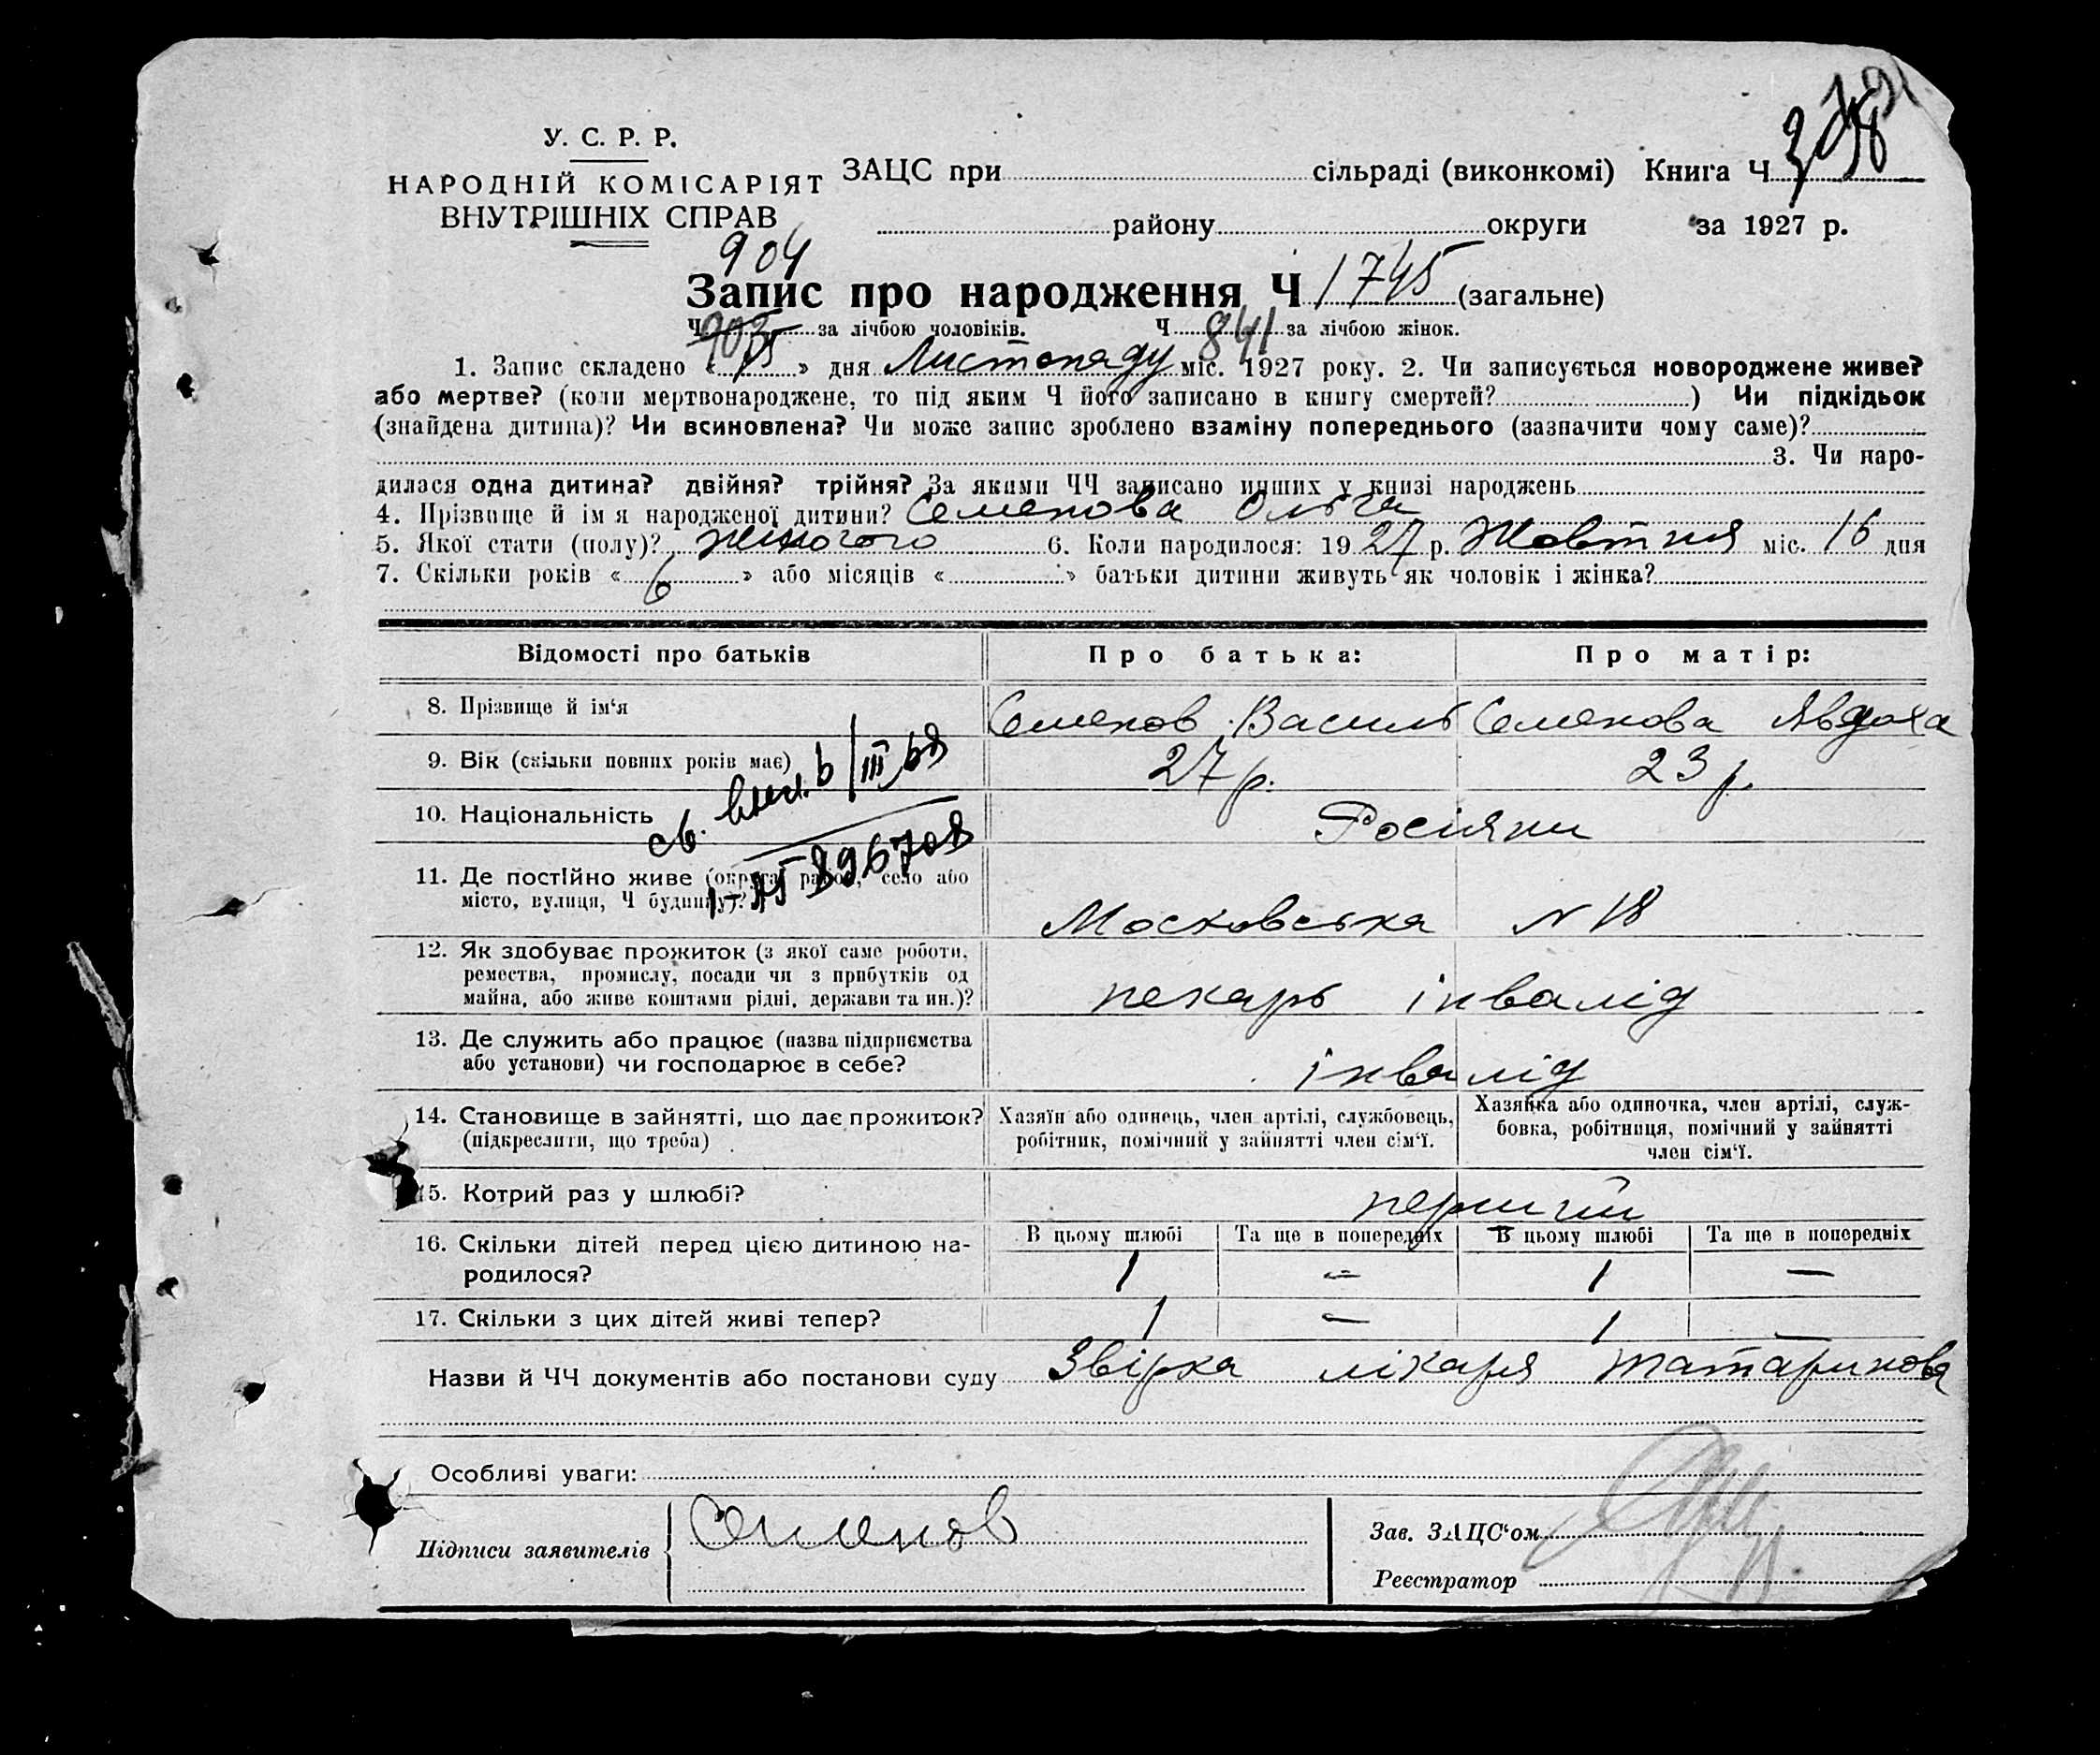 У. С. Р. Р.
НАРОДНІЙ КОМІСАРІЯТ
ВНУТРІШНІХ СПРАВ
ЗАЦС при сільраді (виконкомі) Книга Ч
району округи за 1927 р.
904
Запис про народження Ч 1745 (загальне)
Ч 903 за лічбою чоловіків. Ч 841 за лічбою жінок.
1. Запис складено « 15 » дня Листопаду міс. 1927 року. 2. Чи записується новороджене живе?
або мертве? (коли мертвонароджене, то під яким Ч його записано в книгу смертей? ) Чи підкідьок
(знайдена дитина)? Чи всиновлена? Чи може запис зроблено взаміну попереднього (зазначити чому саме)?
3. Чи наро-
дилася одна дитина? двійня? трійня? За якими ЧЧ записано инших у книзі народжень
4. Прізвище й ім я народженої дитини? Семенова Ольга
5. Якої стати (полу)? жіночого 6. Коли народилося: 1927 р. Жовтня міс. 16 дня
7. Скільки років « 6 » або місяців « » батьки дитини живуть як чоловік і жінка?
Відомості про батьків Про батька: Про матір:
8. Прізвище й ім‘я Семенов Василь Семенова Явдоха
9. Вік (скільки повних років має) 27 р. 23 р.
св. выд. 6/III 68
10. Національність Росіяни
896708
11. Де постійно живе (округа, район, село або
місто, вулиця, Ч будинку)? Московська N 18
12. Як здобуває прожиток (з якої саме роботи,
ремества, промислу, посади чи з прибутків од
майна, або живе коштами рідні, держави та ин.)? пекарь інвалід
13. Де служить або працює (назва підприємства
або установи) чи господарює в себе? інвалід
14. Становище в зайнятті, що дає прожиток?
(підкреслити, що треба)
Хазяїн або одинець, член артілі, службовець,
робітник, помічний у зайнятті член сім‘ї.
Хазяйка або одиночка, член артілі, служ-
бовка, робітниця, помічний у зайнятті
член сім‘ї.
15. Котрий раз у шлюбі? перший
16. Скільки дітей перед цією дитиною на-
родилося?
В цьому шлюбі Та ще в попередніх В цьому шлюбі Та ще в попередніх
1 — 1 —
17. Скільки з цих дітей живі тепер? 1 — 1 —
Назви й ЧЧ документів або постанови суду Звірка лікаря Татаринова
Особливі уваги:
Підписи заявителів Семенов
Зав. ЗАЦС‘ом
Реєстратор